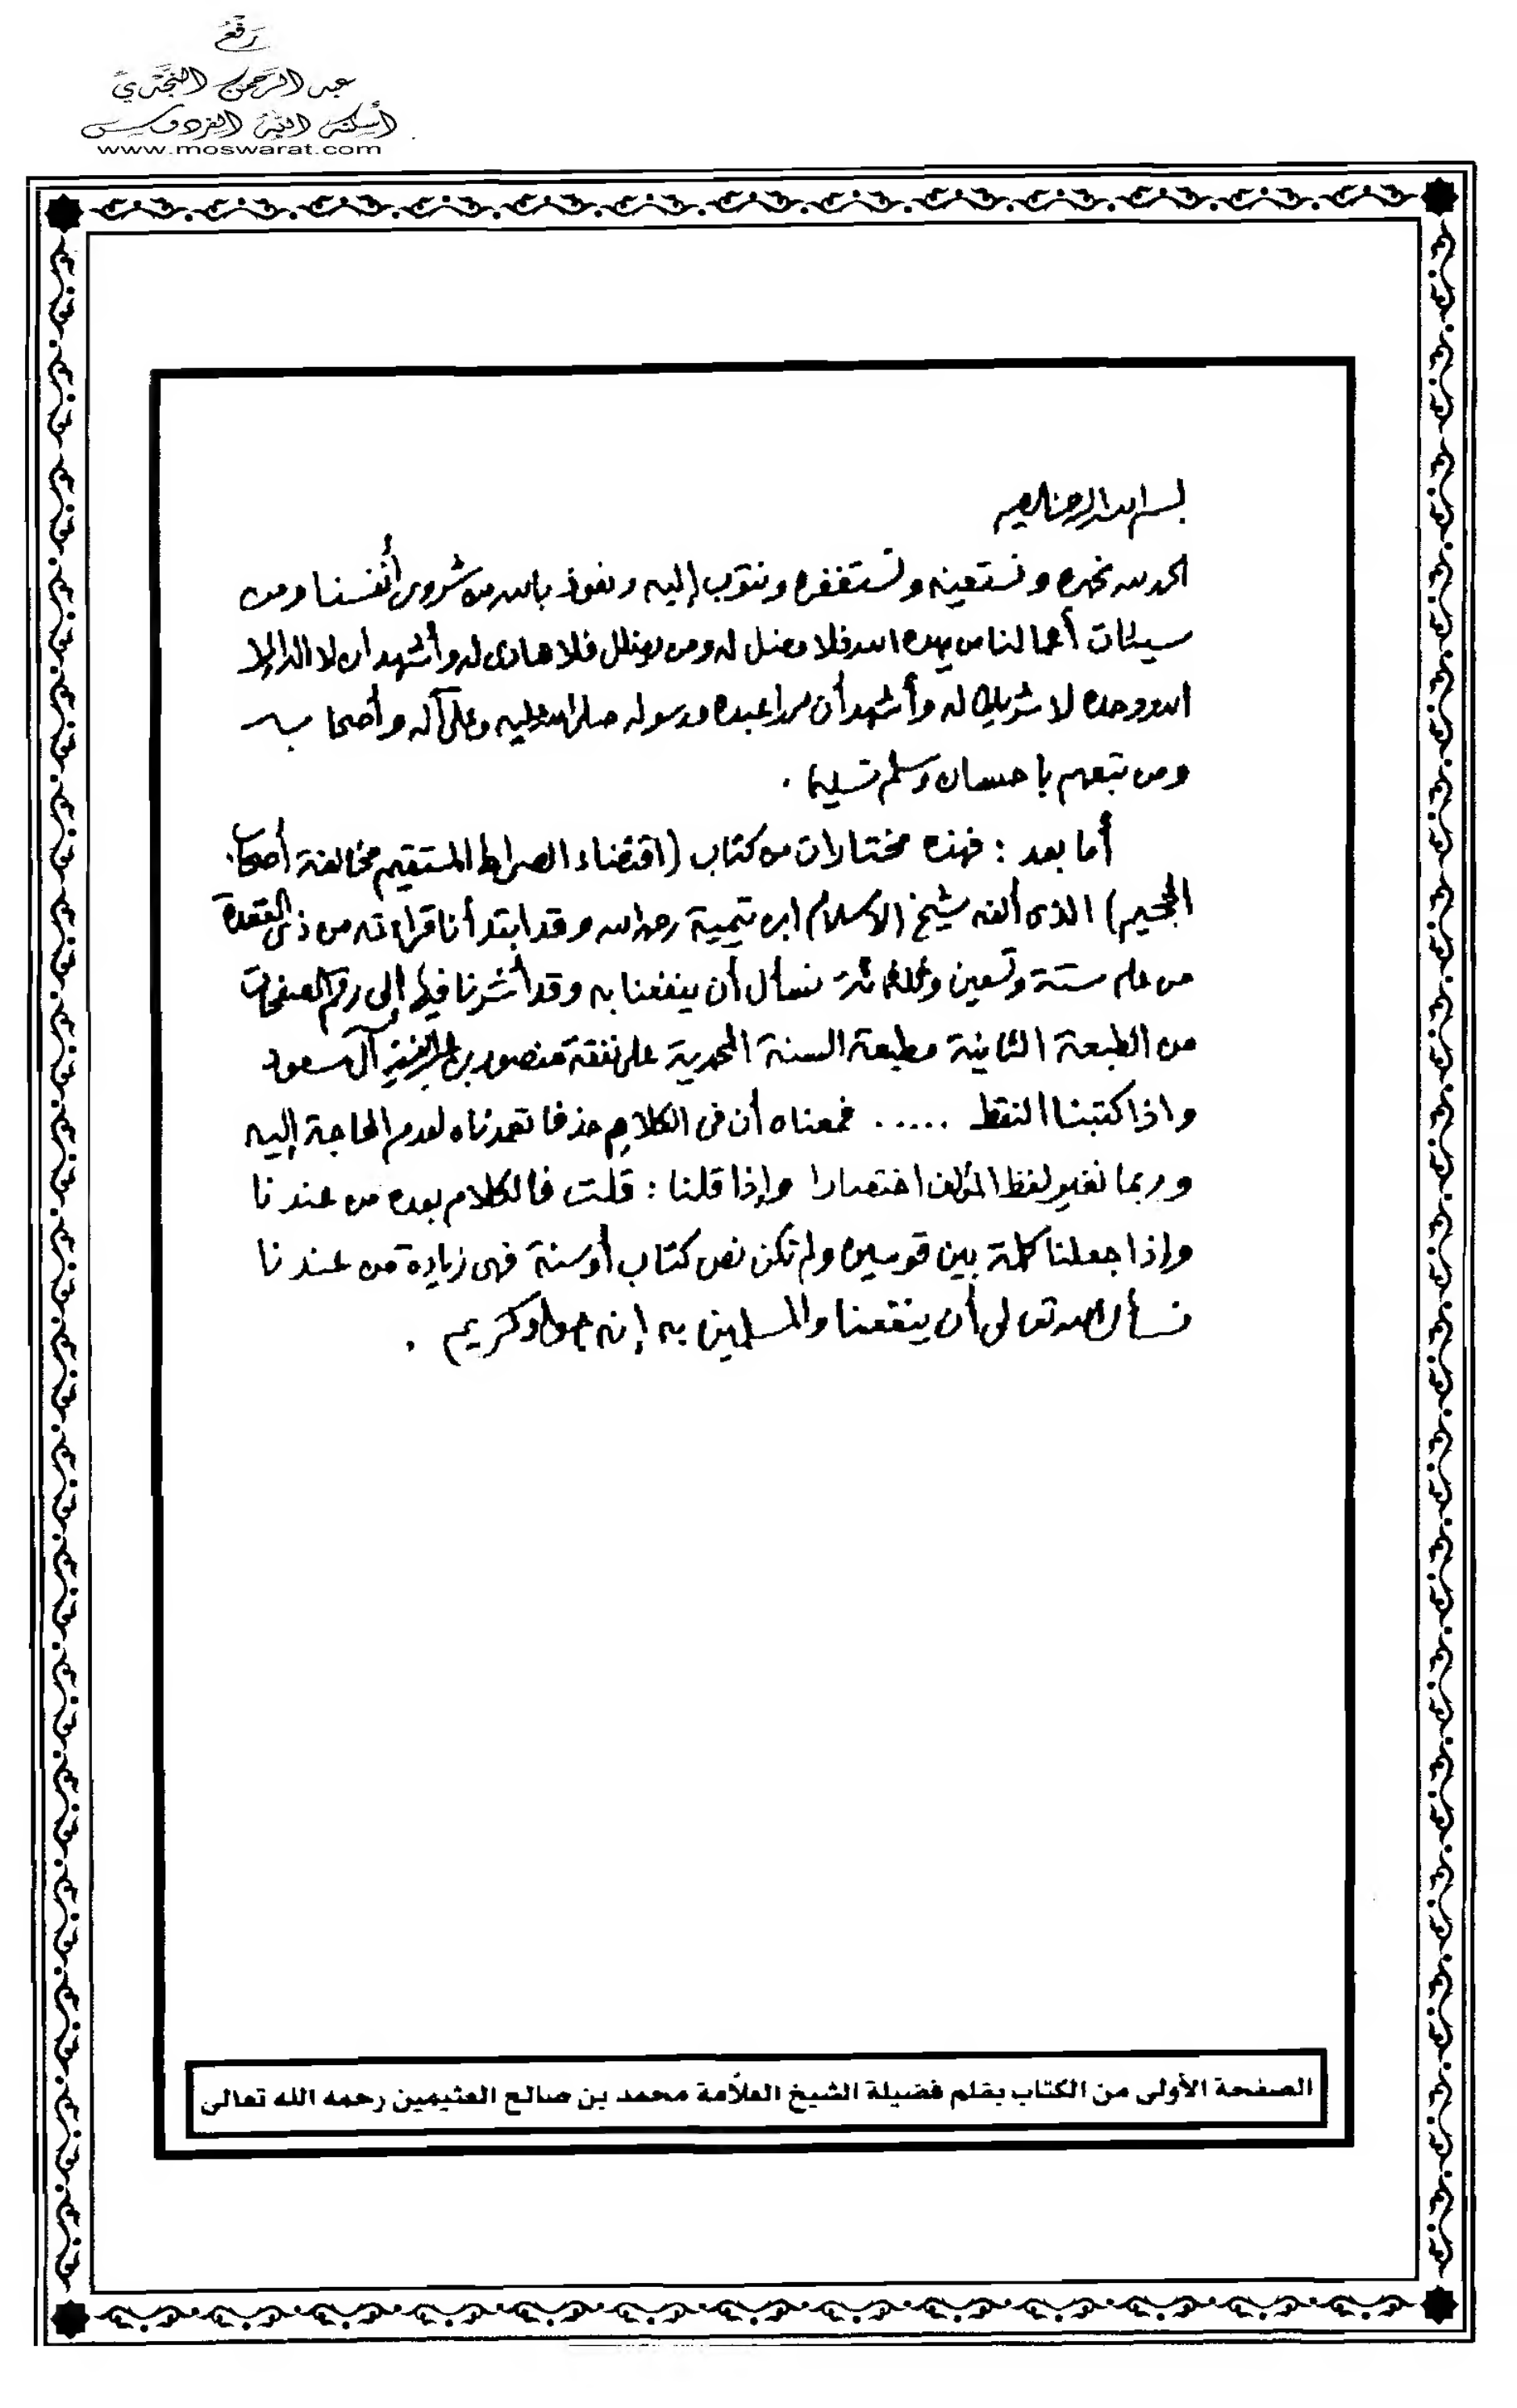 رَفْعُ
عبد الرَّحمن النَّجديِّ
أسكنه اللهُ الفردوس
www.moswarat.com
بسم الله الرحمن الرحيم
الحمد لله نحمده ونستعينه ونستغفره ونتوب إليه ونعوذ بالله من شرور أنفسنا ومن
سيئات أعمالنا من يهده الله فلا مضل له ومن يضلل فلا هادى له وأشهد ان لا اله إلا
الله وحده لا شريك له وأشهد أن محمدا عبده ورسوله صلى الله عليه وعلى آله وأصحابه
ومن تبعهم باحسان وسلم تسليما .
أما بعد : فهذه مختارات من كتاب (اقتضاء الصراط المستقيم مخالفة أصحاب
الجحيم) الذى ألفه شيخ الاسلام ابن تيمية رحمه الله وقد ابتدأنا قراءته من ذى القعدة
من عام ستة وتسعين وثلاثمائة نسأل أن ينفعنا به وقد أشرنا فيها إلى رقم الصفحات
من الطبعة الثانية مطبعة السنة المحمدية على نفقة منصور بن عبد العزيز آل سعود
واذا كتبنا النقط ..... فمعناه أن فى الكلام حذفا تعمدناه لعدم الحاجة إليه
وربما نغير لفظ المؤلف اختصارا وإذا قلنا : قلت فالكلام بعده من عندنا
وإذا جعلنا كلمة بين قوسين ولم تكن نص كتاب أو سنة فهى زيادة من عندنا
نسأل الله تعالى أن ينفعنا والمسلمين به إنه جواد كريم .
الصفحة الأولى من الكتاب بقلم فضيلة الشيخ العلاّمة محمد بن صالح العثيمين رحمه الله تعالى